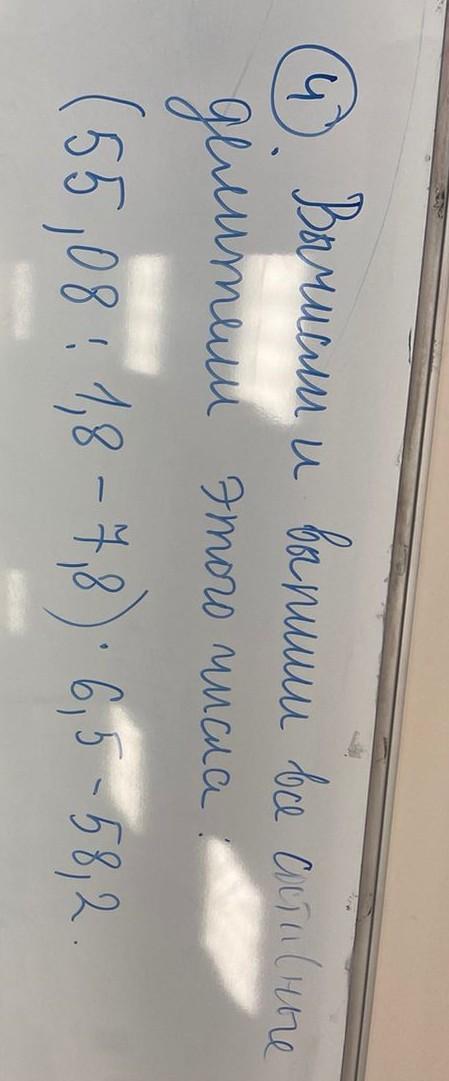 ④. Вычисли и выпиши все составные
делители этого числа:
(55,08 : 1,8 - 7,8) · 6,5 - 58,2.